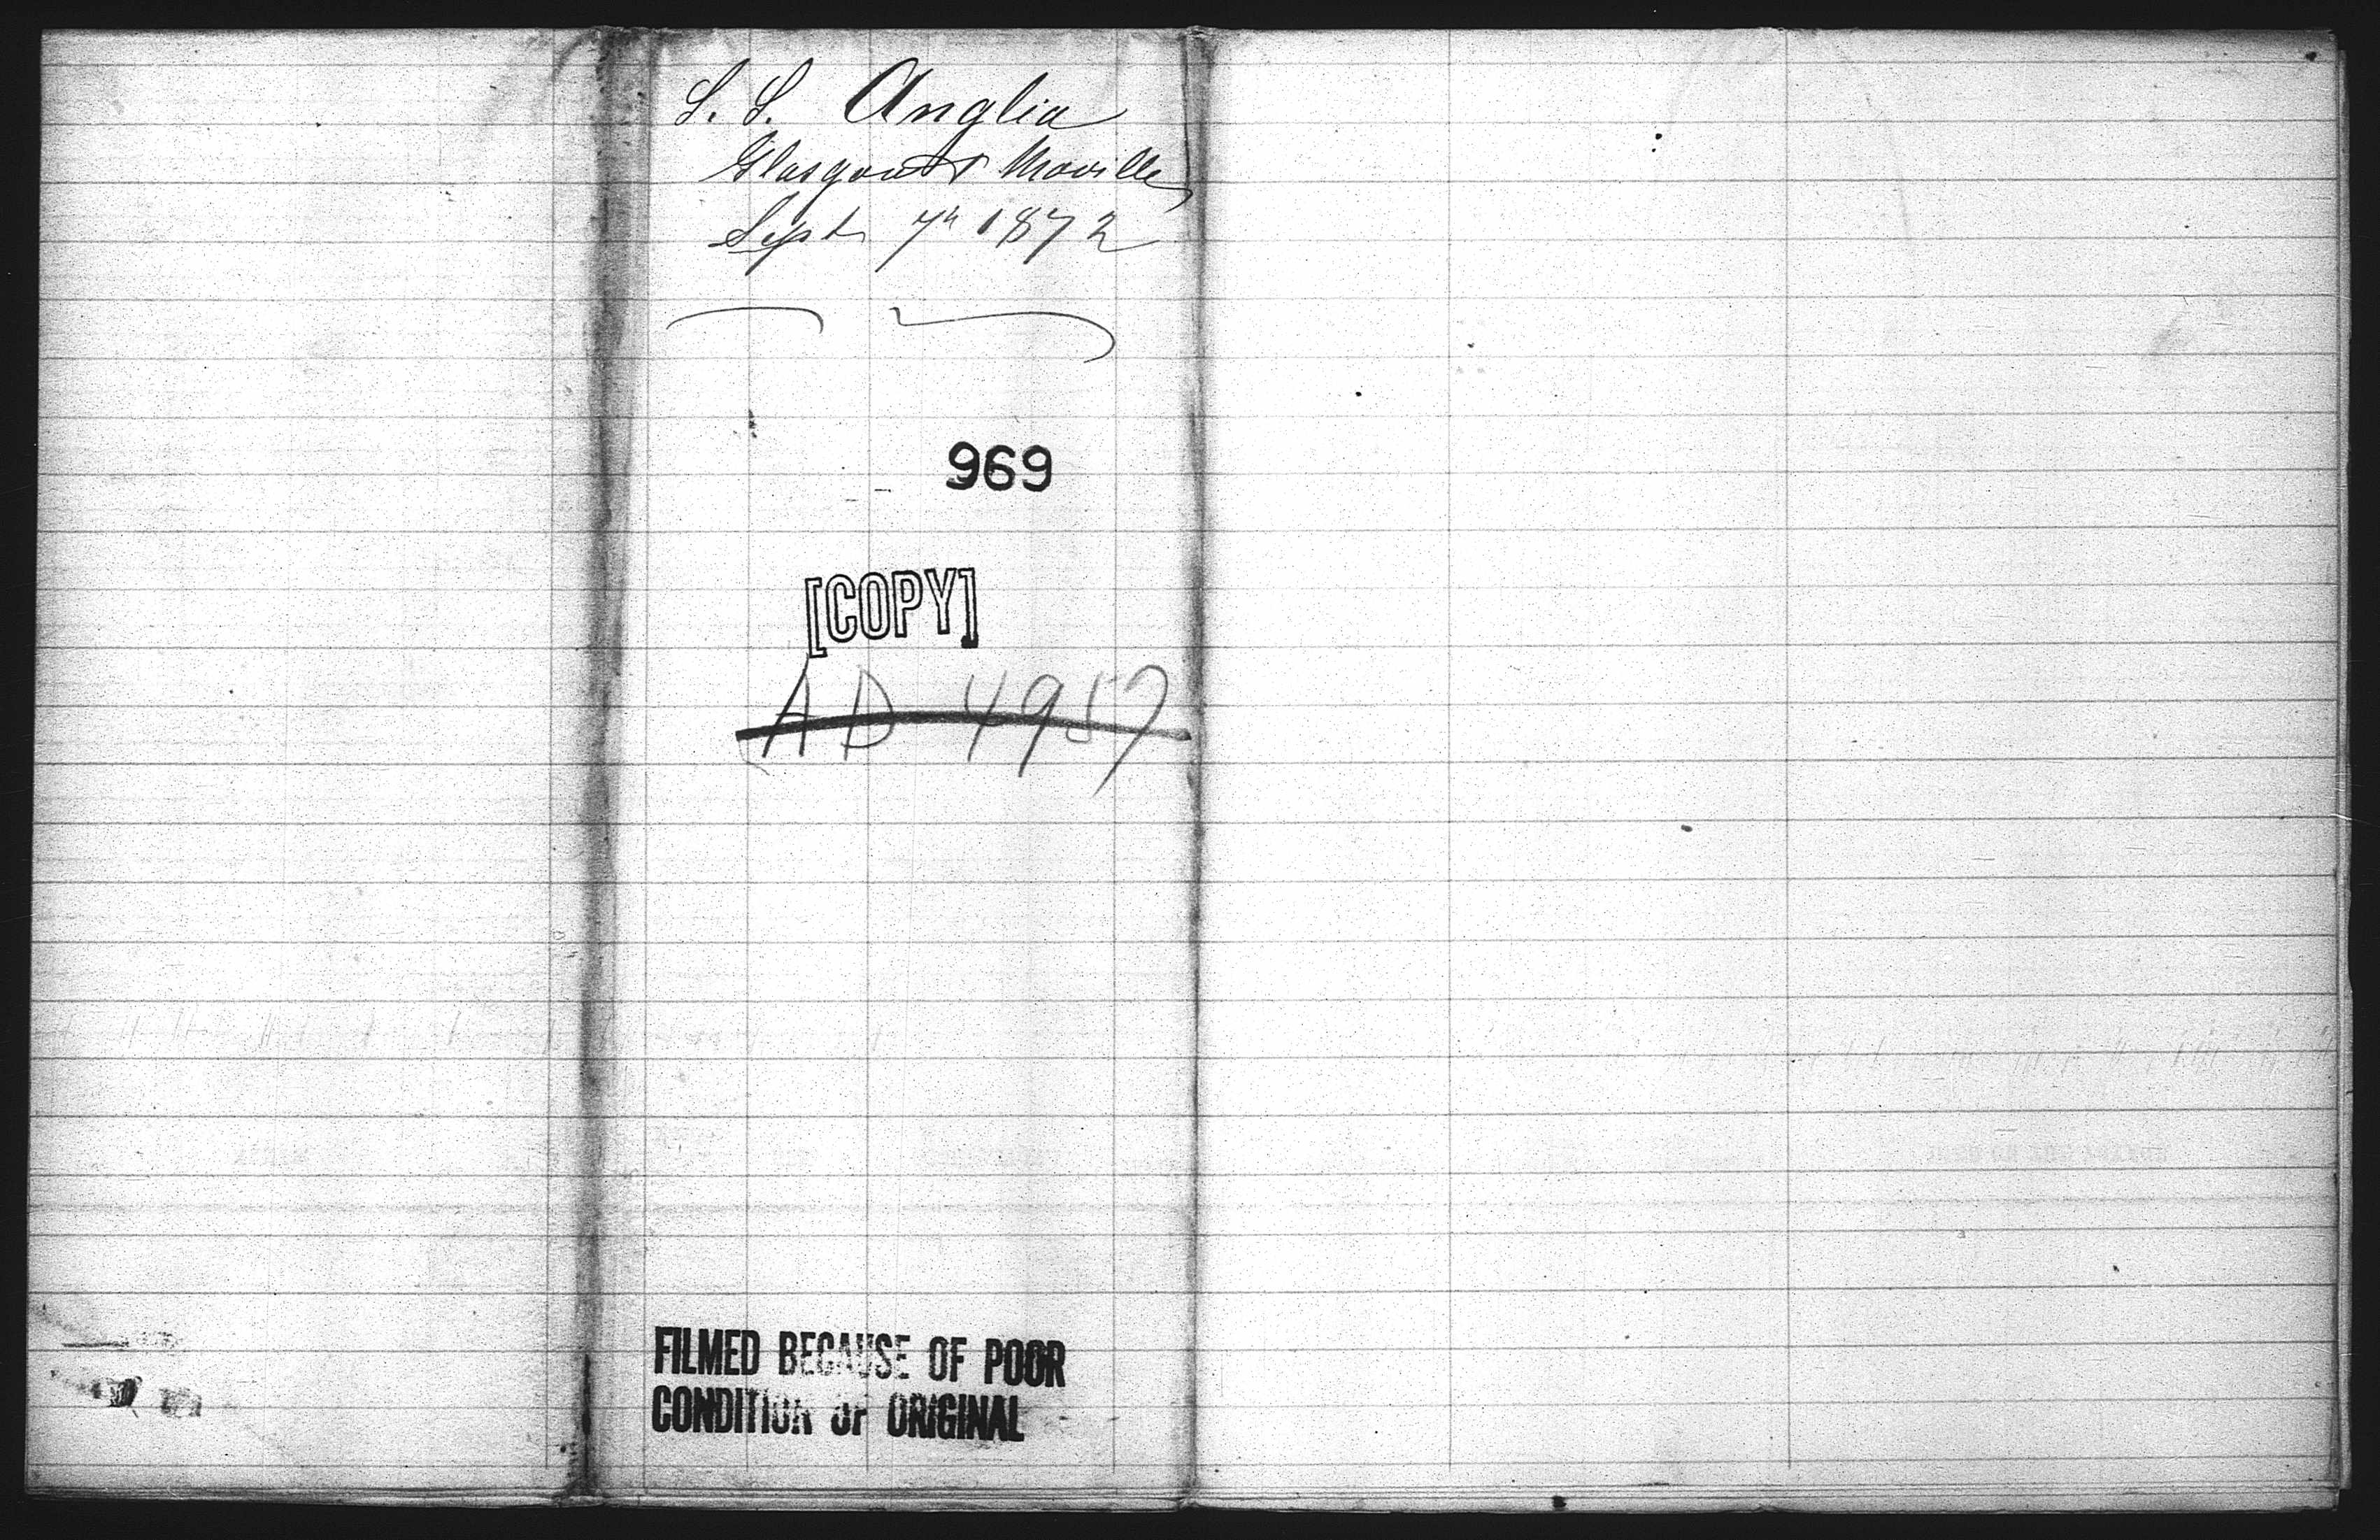 S. S. Anglia
Glasgow & Moville
Sept 7th 1872
969
[COPY]
AD 4957
FILMED BECAUSE OF POOR
CONDITION OF ORIGINAL